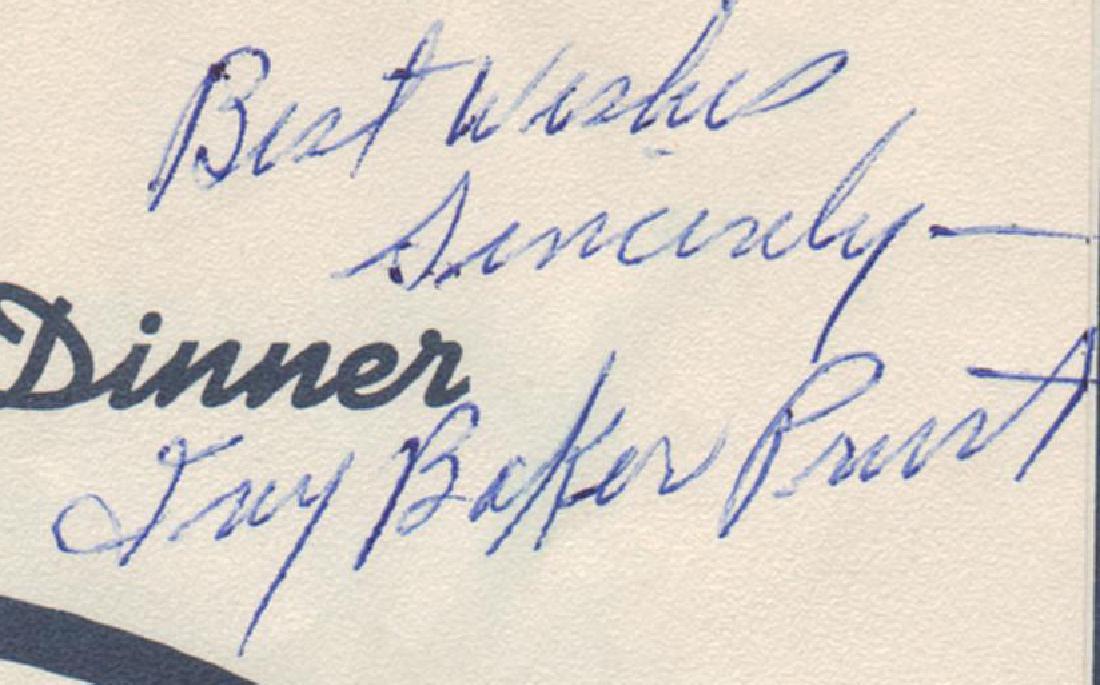 Best Wishes
Sincerely—
Dinner
Ivy Baker Priest